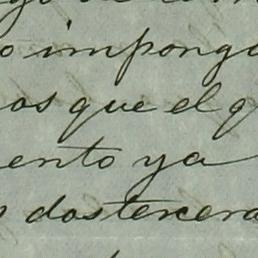 o imponga
os que el q
ento ya
dos tercera